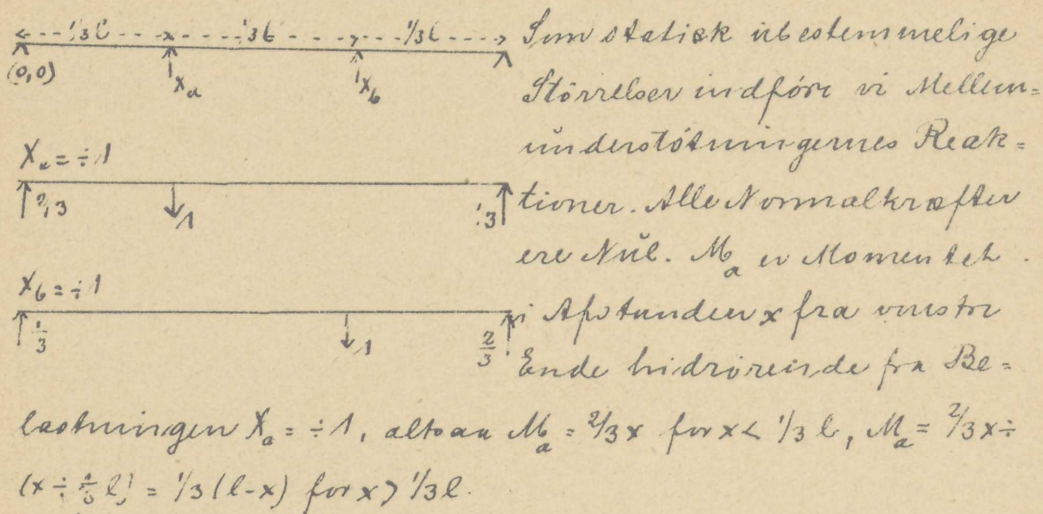 ⅓l ⅓l ⅓l
(0,0) Xa Xb
Xa = ÷1
2/3 1 1/3
Xb = ÷1
1/3 1 2/3
Som statisk ubestemmelige
Störrelser indföre vi Mellem=
understötningernes Reak=
tioner. Alle Normalkræfter
ere Nul. Ma er Momentet
i Afstanden x fra venstre
Ende hidrörende fra Be=
lastningen Xa = ÷1, altsaa Ma = 2/3x for x < 1/3 l, Ma = 2/3x ÷
(x ÷ 1/3 l) = 1/3 (l-x) for x > 1/3 l.